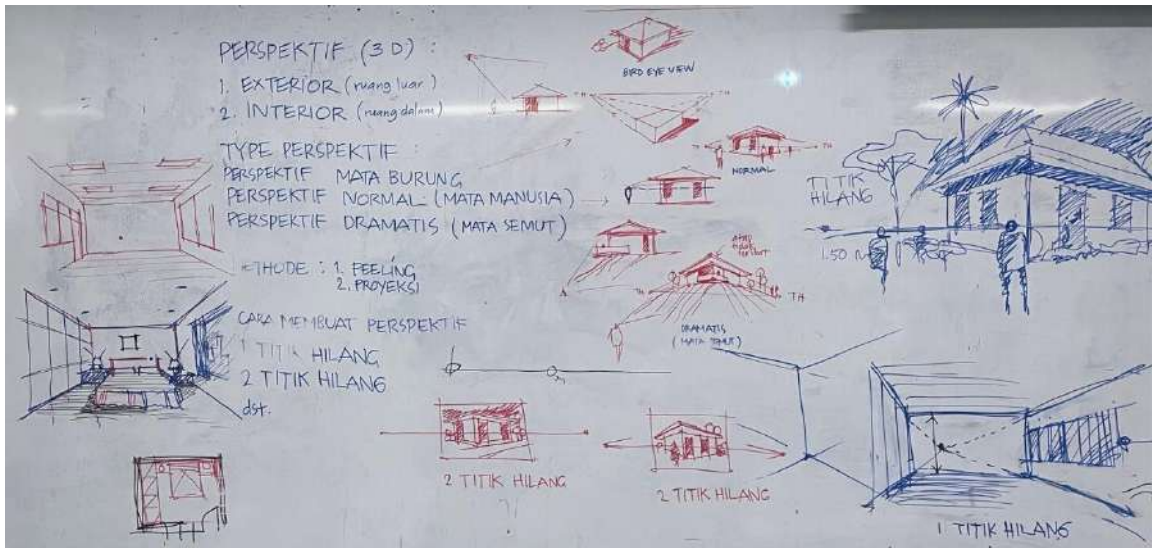 PERSPEKTIF (3D) :
1. EXTERIOR (ruang luar)
2. INTERIOR (ruang dalam)
TYPE PERSPEKTIF :
PERSPEKTIF MATA BURUNG
PERSPEKTIF NORMAL (MATA MANUSIA)
PERSPEKTIF DRAMATIS (MATA SEMUT)
METHODE : 1. FEELING
2. PROYEKSI
CARA MEMBUAT PERSPEKTIF
1 TITIK HILANG
2 TITIK HILANG
dst.
BIRD EYE VIEW
TH
TH
NORMAL
TH
TH
DRAMATIS
(MATA SEMUT)
2 TITIK HILANG
2 TITIK HILANG
TITIK
HILANG
1.50 m
1 TITIK HILANG